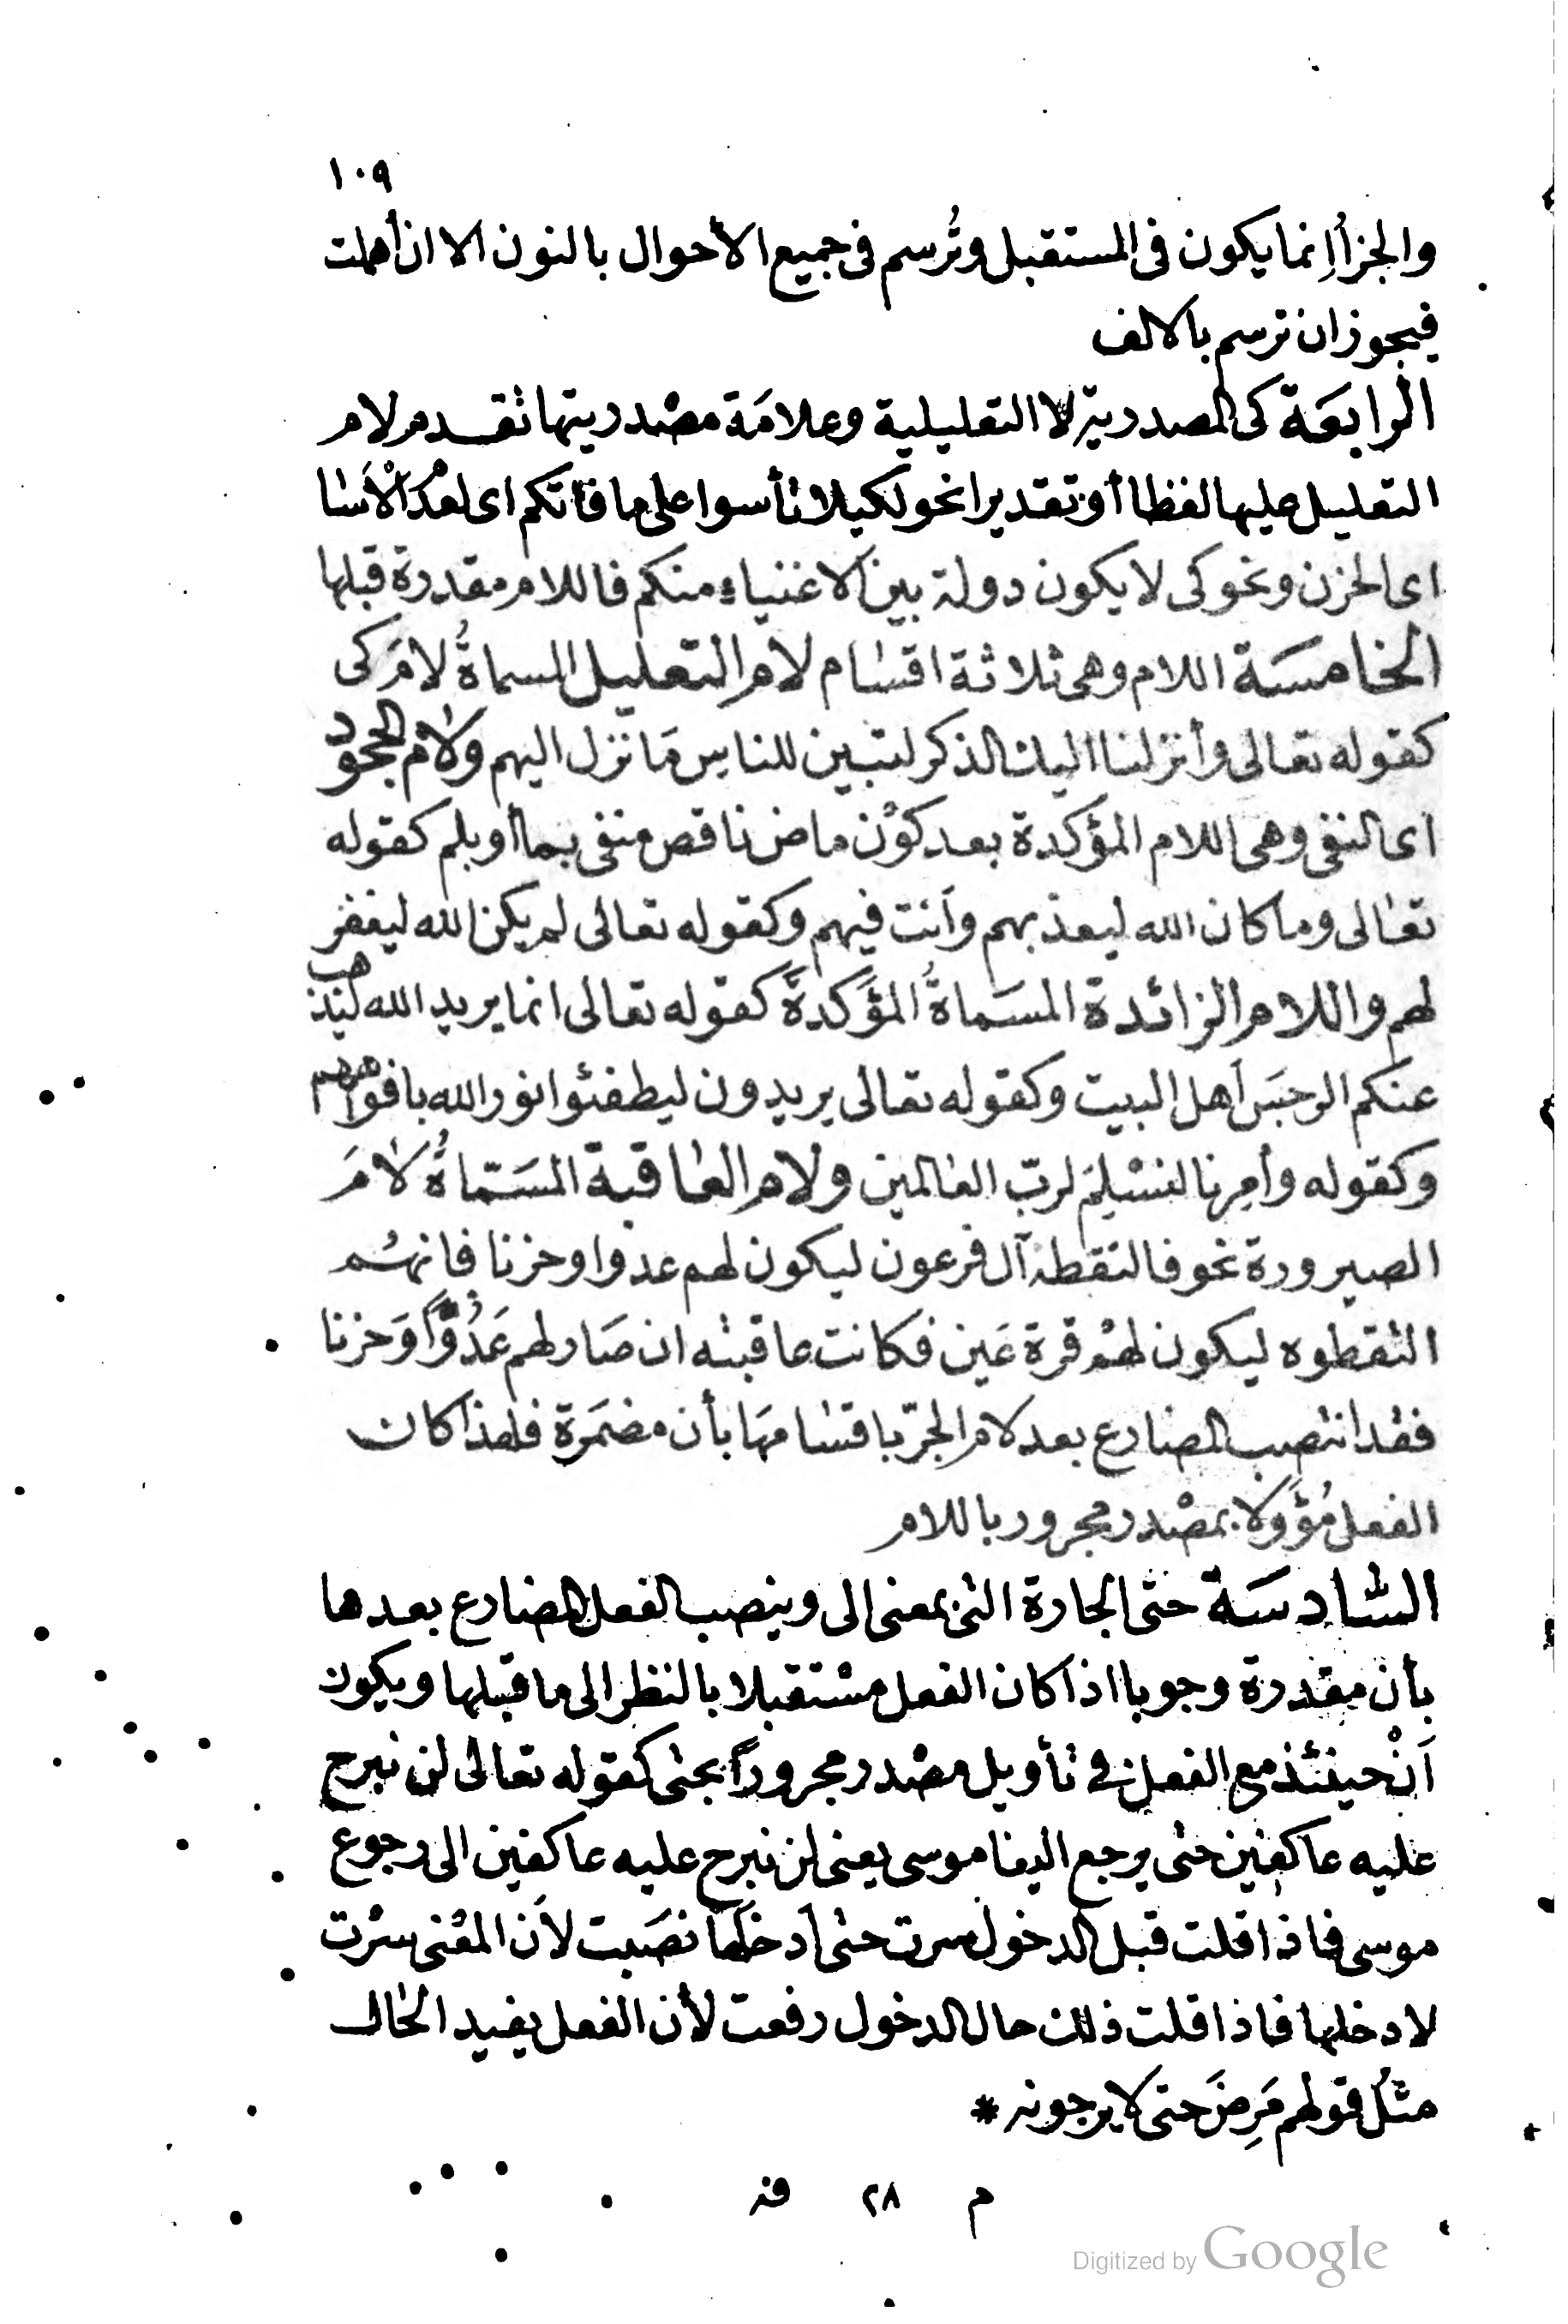 ١٠٩
والجزأ إنما يكون فى المستقبل وتُرسم فى جميع الأحوال بالنون الا ان أهملت
فيجوز ان ترسم بالالف
الرابعَة كى المصدرية لا التعليلية وعلامَة مصْدريتها تقدم لام
التعليل عليها لفظا أو تقديرا نحو لكيلا تأسوا على ما فاتكم اى لعْدَم الْأَسَا
اى الحزن ونحو كى لا يكون دولة بين الاغنياء منكم فاللام مقدرة قبلها
الخامسَة اللام وهى ثلاثة اقسام لام التعليل المسماةُ لامَ كى
كقوله تعالى وأنزلنا اليك الذكر لتبين للناس مَا نزل اليهم ولام الجحود
اى النفى وهى اللام المؤكدة بعد كوْن ماض ناقص منفى بما أو بلم كقوله
تعالى وما كان الله ليعذبهم وأنت فيهم وكقوله تعالى لم يكن الله ليغفر
لهم واللام الزائدة المسَماةُ المؤَكدةَ كقوله تعالى انما يريد الله ليذهب
عنكم الرجسَ أهل البيت وكقوله تعالى يريدون ليطفئوا نور الله بافواههم
وكقوله وأمِرنا لنسْلِمَ لربّ العالمين ولام العاقبة المسَمّاةُ لامَ
الصيرورة نحو فالتقطه آل فرعون ليكون لهم عدوا وحزنا فانهُم
التقطوه ليكون لهمْ قرة عَين فكانت عاقبته ان صَار لهم عَدُوًّا وَحزنا
فقد انتصب المضارع بعد لام الجرّ باقسَامهَا بأن مضمَرة فلهذا كان
الفعل مُؤَولا بمصْدر مجرور باللام
السَّادسَة حتى الجارة التى بمعنى الى وينصب الفعل المضارع بعدها
بأن مقدرة وجوبا اذا كان الفعل مسْتقبلا بالنظر الى ما قبلها ويكون
أَنْ حينئذ مع الفعل فى تأويل مصْدر مجروراً بحتى كقوله تعالى لن نبرح
عليه عاكفين حتى يرجع الينا موسى يعنى لن نبرح عليه عاكفين الى رجوع
موسى فاذا قلت قبل الدخول سرت حتى أدخلَها نصَبت لأَن المعْنى سرْت
لادخلها فاذا قلت ذلك حال الدخول رفعت لأن الفعل يفيد الحال
مثلُ قولهم مَرِضَ حتى لا يرجونه *
م ٢٨ فذ
Digitized by Google